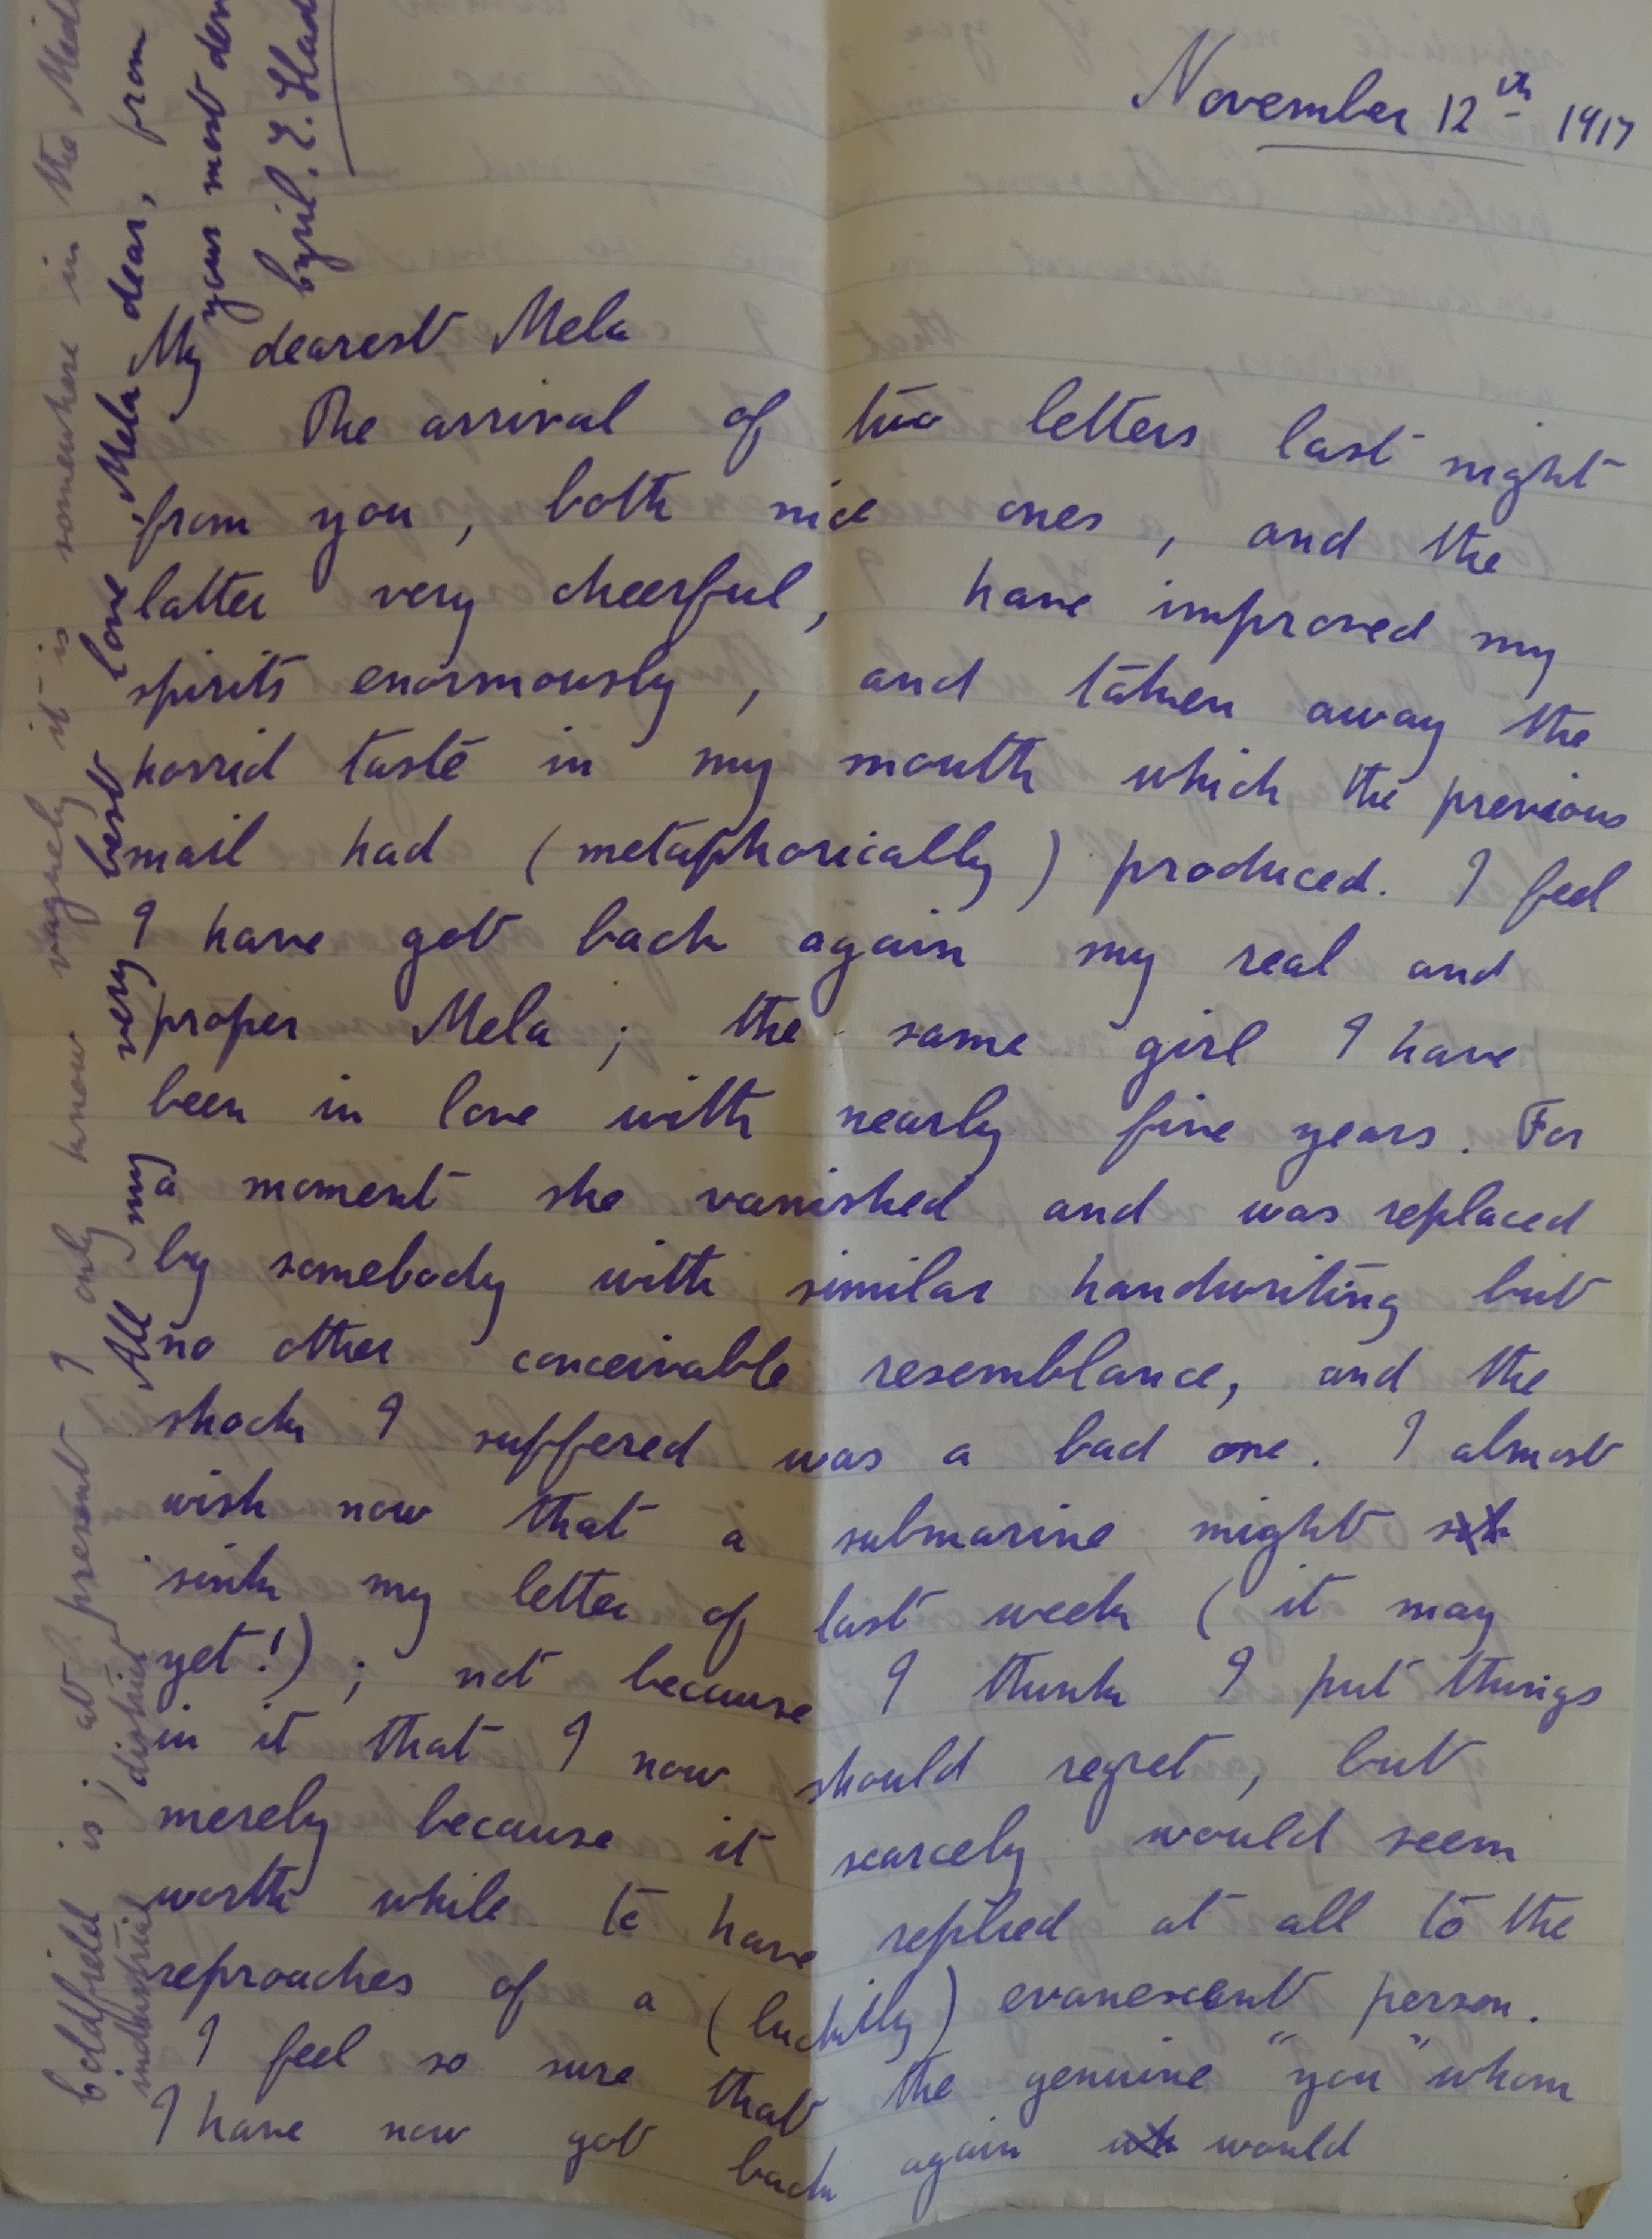 November 12th 1917
My dearest Mela
The arrival of two letters last night
from you, both nice ones, and the
latter very cheerful, have improved my
spirits enormously, and taken away the
horrid taste in my mouth which the previous
mail had (metaphorically) produced. I feel
I have got back again my real and
proper Mela; the same girl I have
been in love with nearly five years. For
a moment she vanished and was replaced
by somebody with similar handwriting but
no other conceivable resemblance, and the
shock I suffered was a bad one. I almost
wish now that a submarine might
sink my letter of last week (it may
yet!); not because I think I put things
in it that I now should regret, but
merely because it scarcely would seem
worth while to have replied at all to the
reproaches of a (luckily) evanescent person.
I feel so sure that the genuine "you" whom
I have now got back again would
Coldfield is at present I only know vaguely it is somewhere in the
industrial district
All my very best love, Mela dear, from
your most
Cyril. E.